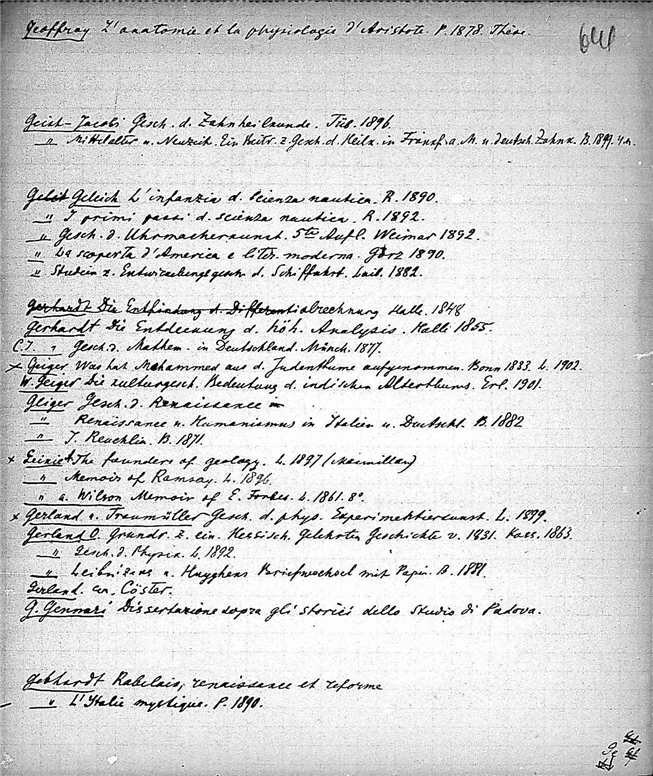 Geoffroy L'anatomie et la physiologie d'Aristote. P. 1878. Thèse.
641
Geist-Jacobi Gesch. d. Zahnheilkunde. Tüb. 1896.
" Mittelalter u. Neuzeit. Ein Beitr. z. Gesch. d. Heilk. in Frankf. a. M. u. deutsch. Zahnk. B. 1899.
Geleich L'infanzia d. scienza nautica. R. 1890.
" I primi passi d. scienza nautica. R. 1892.
" Gesch. d. Uhrmacherkunst. 5te Aufl. Weimar 1892.
" La scoperta d'America e liter. moderna. Görz 1890.
" Studien z. Entwickelungsgesch. d. Schiffahrt. Laib. 1882.
Gerhardt Die Entfindung d. Differentialrechnung Halle. 1848
Gerhardt Die Entdeckung d. höh. Analysis. Halle 1855.
C.I. " Gesch. d. Mathem. in Deutschland. Münch. 1877.
x Geiger Was hat Mohammed aus d. Judenthume aufgenommen. Bonn 1833. L. 1902.
W. Geiger Die kulturgesch. Bedeutung d. indischen Alterthums. Erl. 1901.
Geiger Gesch. d. Renaissance
" Renaissance u. Humanismus in Italien u. Deutschl. B. 1882
" J. Reuchlin. B. 1871.
x Geikie A The founders of geology. L. 1897 (Macmillan)
" Memoir of Ramsay. L. 1896.
" a. Wilson Memoir of E. Forbes. L. 1861. 8°.
x Gerland u. Traumüller Gesch. d. phys. Experimentierkunst. L. 1899.
Gerland O. Grundr. z. ein. Hessisch. Gelehrten Geschichte v. 1831. Kass. 1863.
" Gesch. d. Physik. L. 1892.
" Leibnizens u. Huyghens Briefwechsel mit Papin. B. 1881.
Gerland. Cöster.
G. Gennari Dissertazione sopra gli storici dello Studio di Padova.
Gebhardt Rabelais, renaissance et reforme
" L'Italie mystique. P. 1890.
Ge